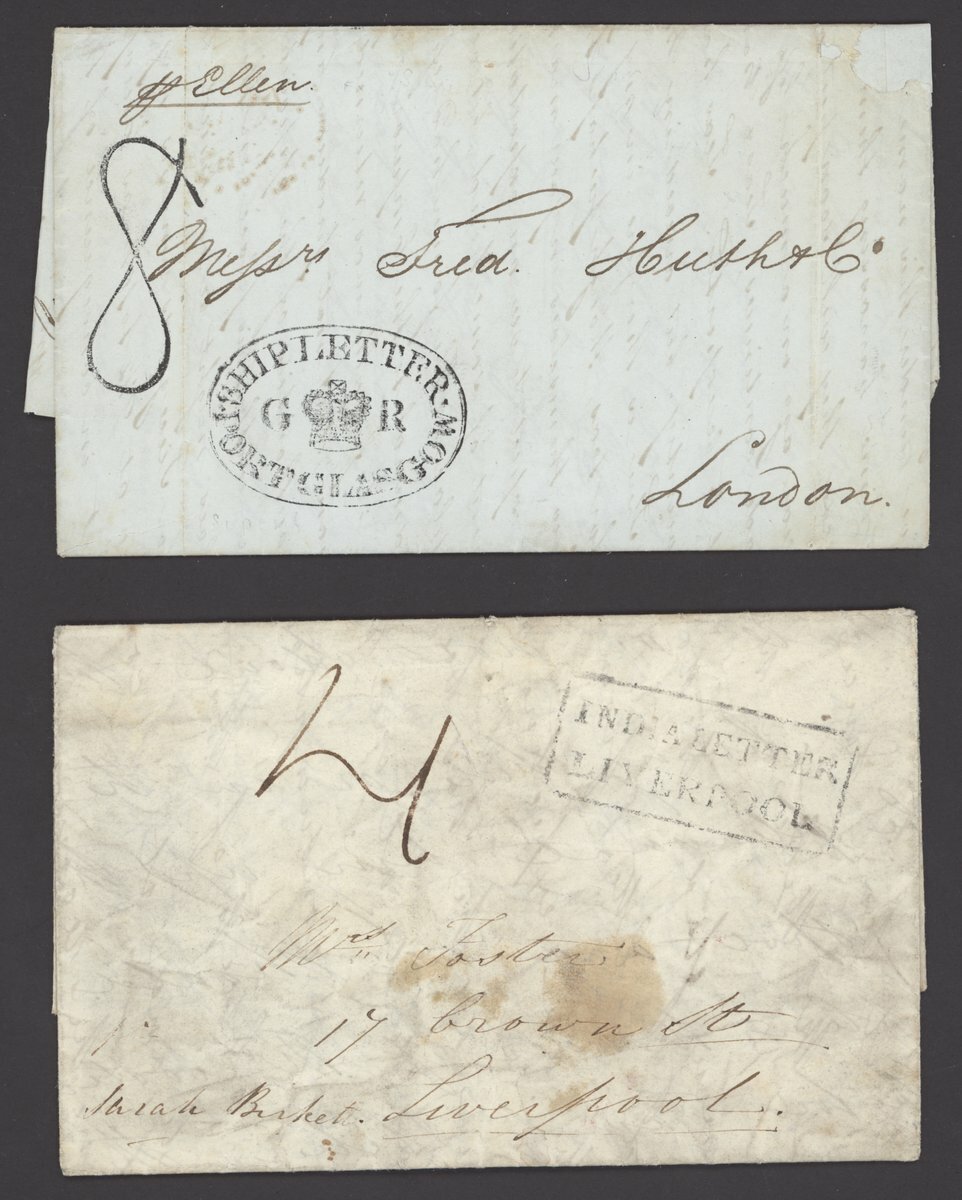 p Ellen.
8
Messrs Fred. Huth & Co
SHIP LETTER
G R
PORT GLASGOW
London.
4
INDIA LETTER
LIVERPOOL
Mrs Foster
17 Crown St
Sarah Birkett. Liverpool.